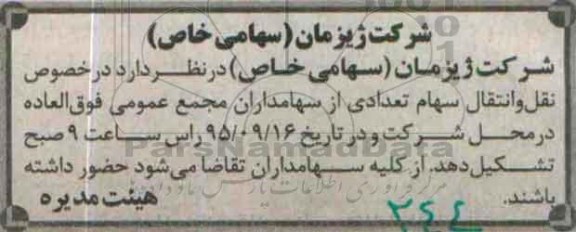 شرکت ژیزمان (سهامی خاص)
شرکت ژیزمان (سهامی خاص) درنظر دارد درخصوص
نقل وانتقال سهام تعدادی از سهامداران مجمع عمومی فوق العاده
درمحل شرکت و در تاریخ ۹۵/۰۹/۱۶ راس ساعت ۹ صبح
تشکیل دهد. از کلیه سهامداران تقاضا می شود حضور داشته
باشند. هیئت مدیره
ParsNamadData
۲۴۴